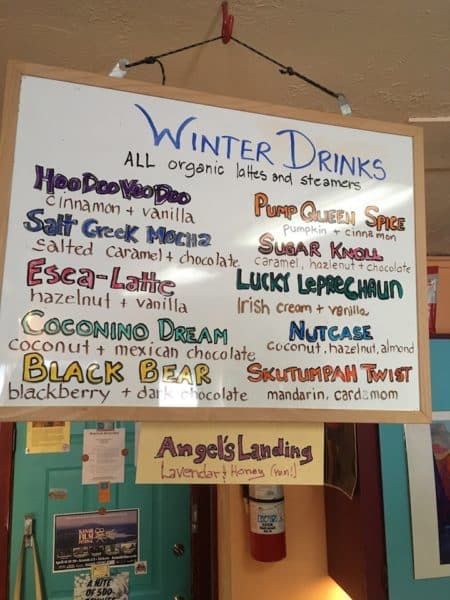 WINTER DRINKS
ALL organic lattes and steamers
HooDoo VooDoo
cinnamon + vanilla
Salt Creek Mocha
Salted caramel + chocolate
Esca-Latte
hazelnut + vanilla
COCONINO DREAM
coconut + mexican chocolate
BLACK BEAR
blackberry + dark chocolate
PUMP QUEEN SPICE
pumpkin + cinnamon
SUGAR KNOLL
caramel, hazlenut + chocolate
LUCKY LEPRECHAUN
Irish cream + vanilla
NUTCASE
coconut, hazelnut, almond
SKUTUMPAH TWIST
mandarin, cardamom
Angel's Landing
Lavendar & Honey (yum!)
KANAB
FILM
A KITE
OF 500